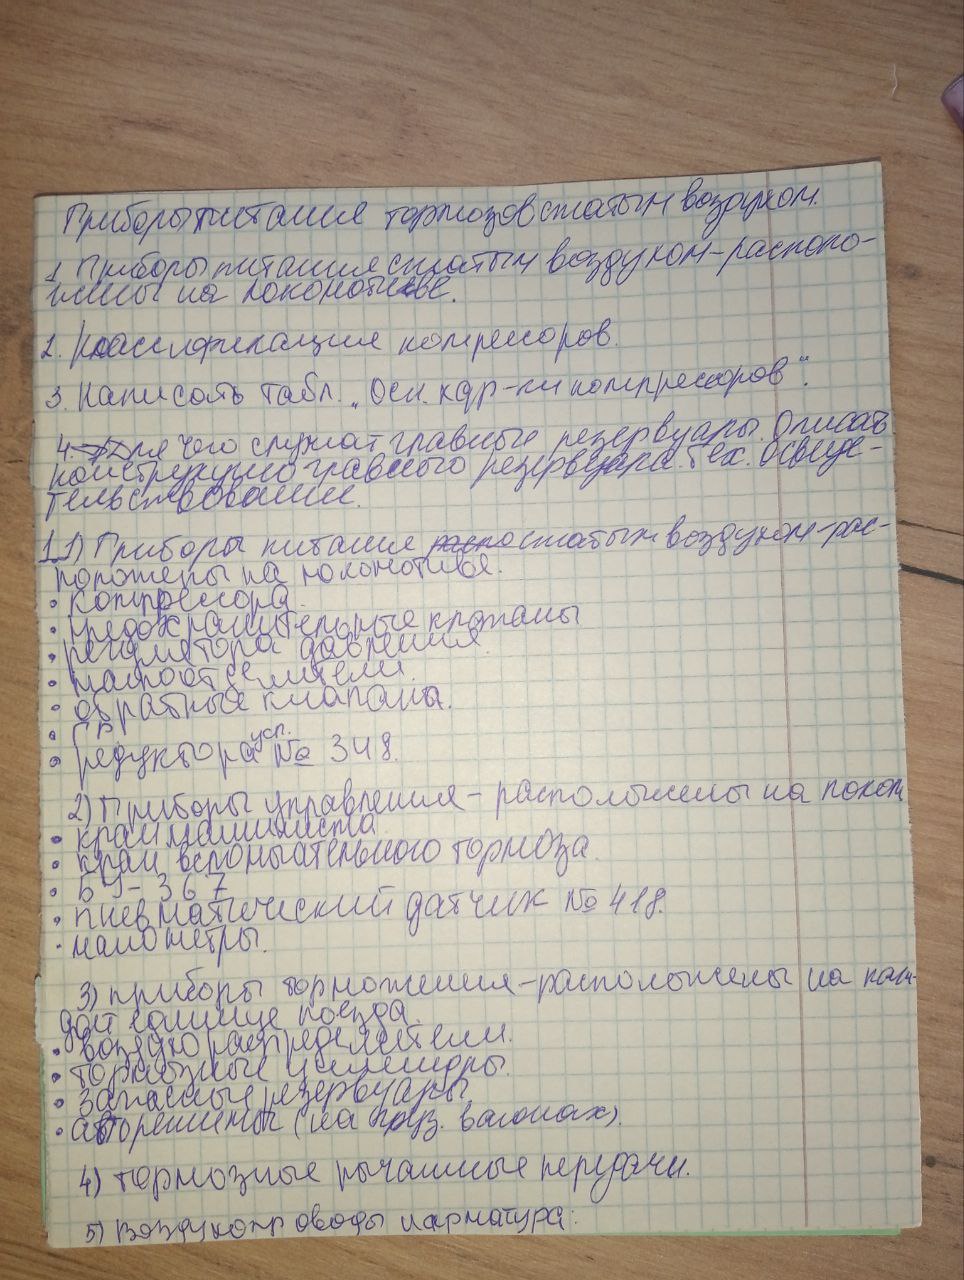 Приборы питания тормозов сжатым воздухом.
1. Приборы питания сжатым воздухом - располо-
жены на локомотиве.
2. Классификация компрессоров.
3. Написать табл. „Осн. хар-ки компрессоров".
4. Для чего служат главные резервуары. Описать
конструкцию главного резервуара. Тех. освиде-
тельствование.
1.1) Приборы питания сжатым воздухом - рас-
положены на локомотиве.
• компрессора.
• предохранительные клапаны
• регулятора давления.
• маслоотделители.
• обратные клапана.
• ГР
• редуктора усл. № 348.
2) Приборы управления - расположены на локом
• кран машиниста
• кран вспомогательного тормоза.
• БУ - 367
• пневматический датчик № 418.
• манометры.
3) приборы торможения - расположены на каж-
дой единице поезда.
• воздухораспределители.
• тормозные цилиндры.
• запасные резервуары
• авторежимы (на груз. вагонах).
4) тормозные рычажные передачи.
5) Воздухопроводы и арматура: